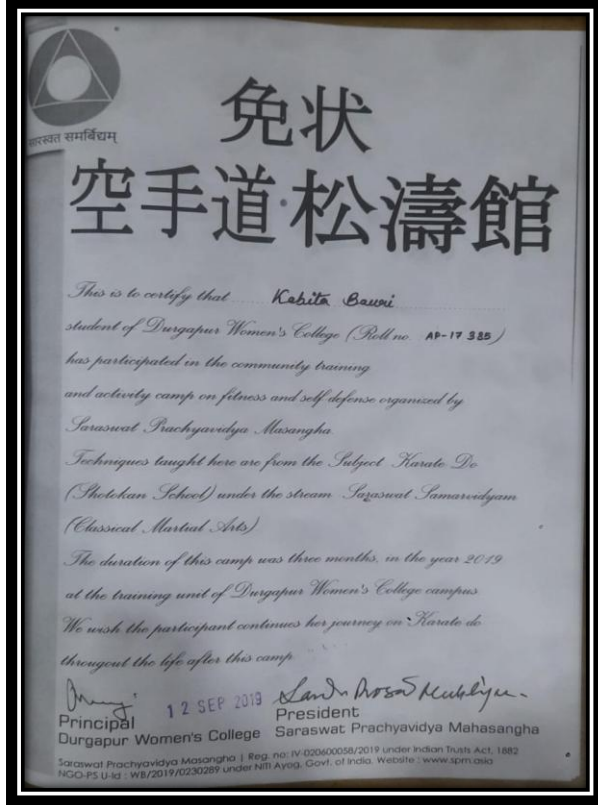 सारस्वत समर्बिद्यम्
免状
空手道·松濤館
This is to certify that Kabita Bauri
student of Durgapur Women's College (Roll no. AP-17 385)
has participated in the community training
and activity camp on fitness and self defense organized by
Saraswat Prachyavidya Masangha
Techniques taught here are from the Subject Karate Do
(Shotokan School) under the stream Saraswat Samarvidyam
(Classical Martial Arts)
The duration of this camp was three months, in the year 2019
at the training unit of Durgapur Women's College campus
We wish the participant continues her journey on Karate do
througout the life after this camp
12 SEP 2019
Principal
Durgapur Women's College
President
Saraswat Prachyavidya Mahasangha
Saraswat Prachyavidya Masangha | Reg. no: IV-020600058/2019 under Indian Trusts Act, 1882
NGO-PS U-Id : WB/2019/0230289 under NITI Ayog, Govt. of India. Website : www.spm.asia